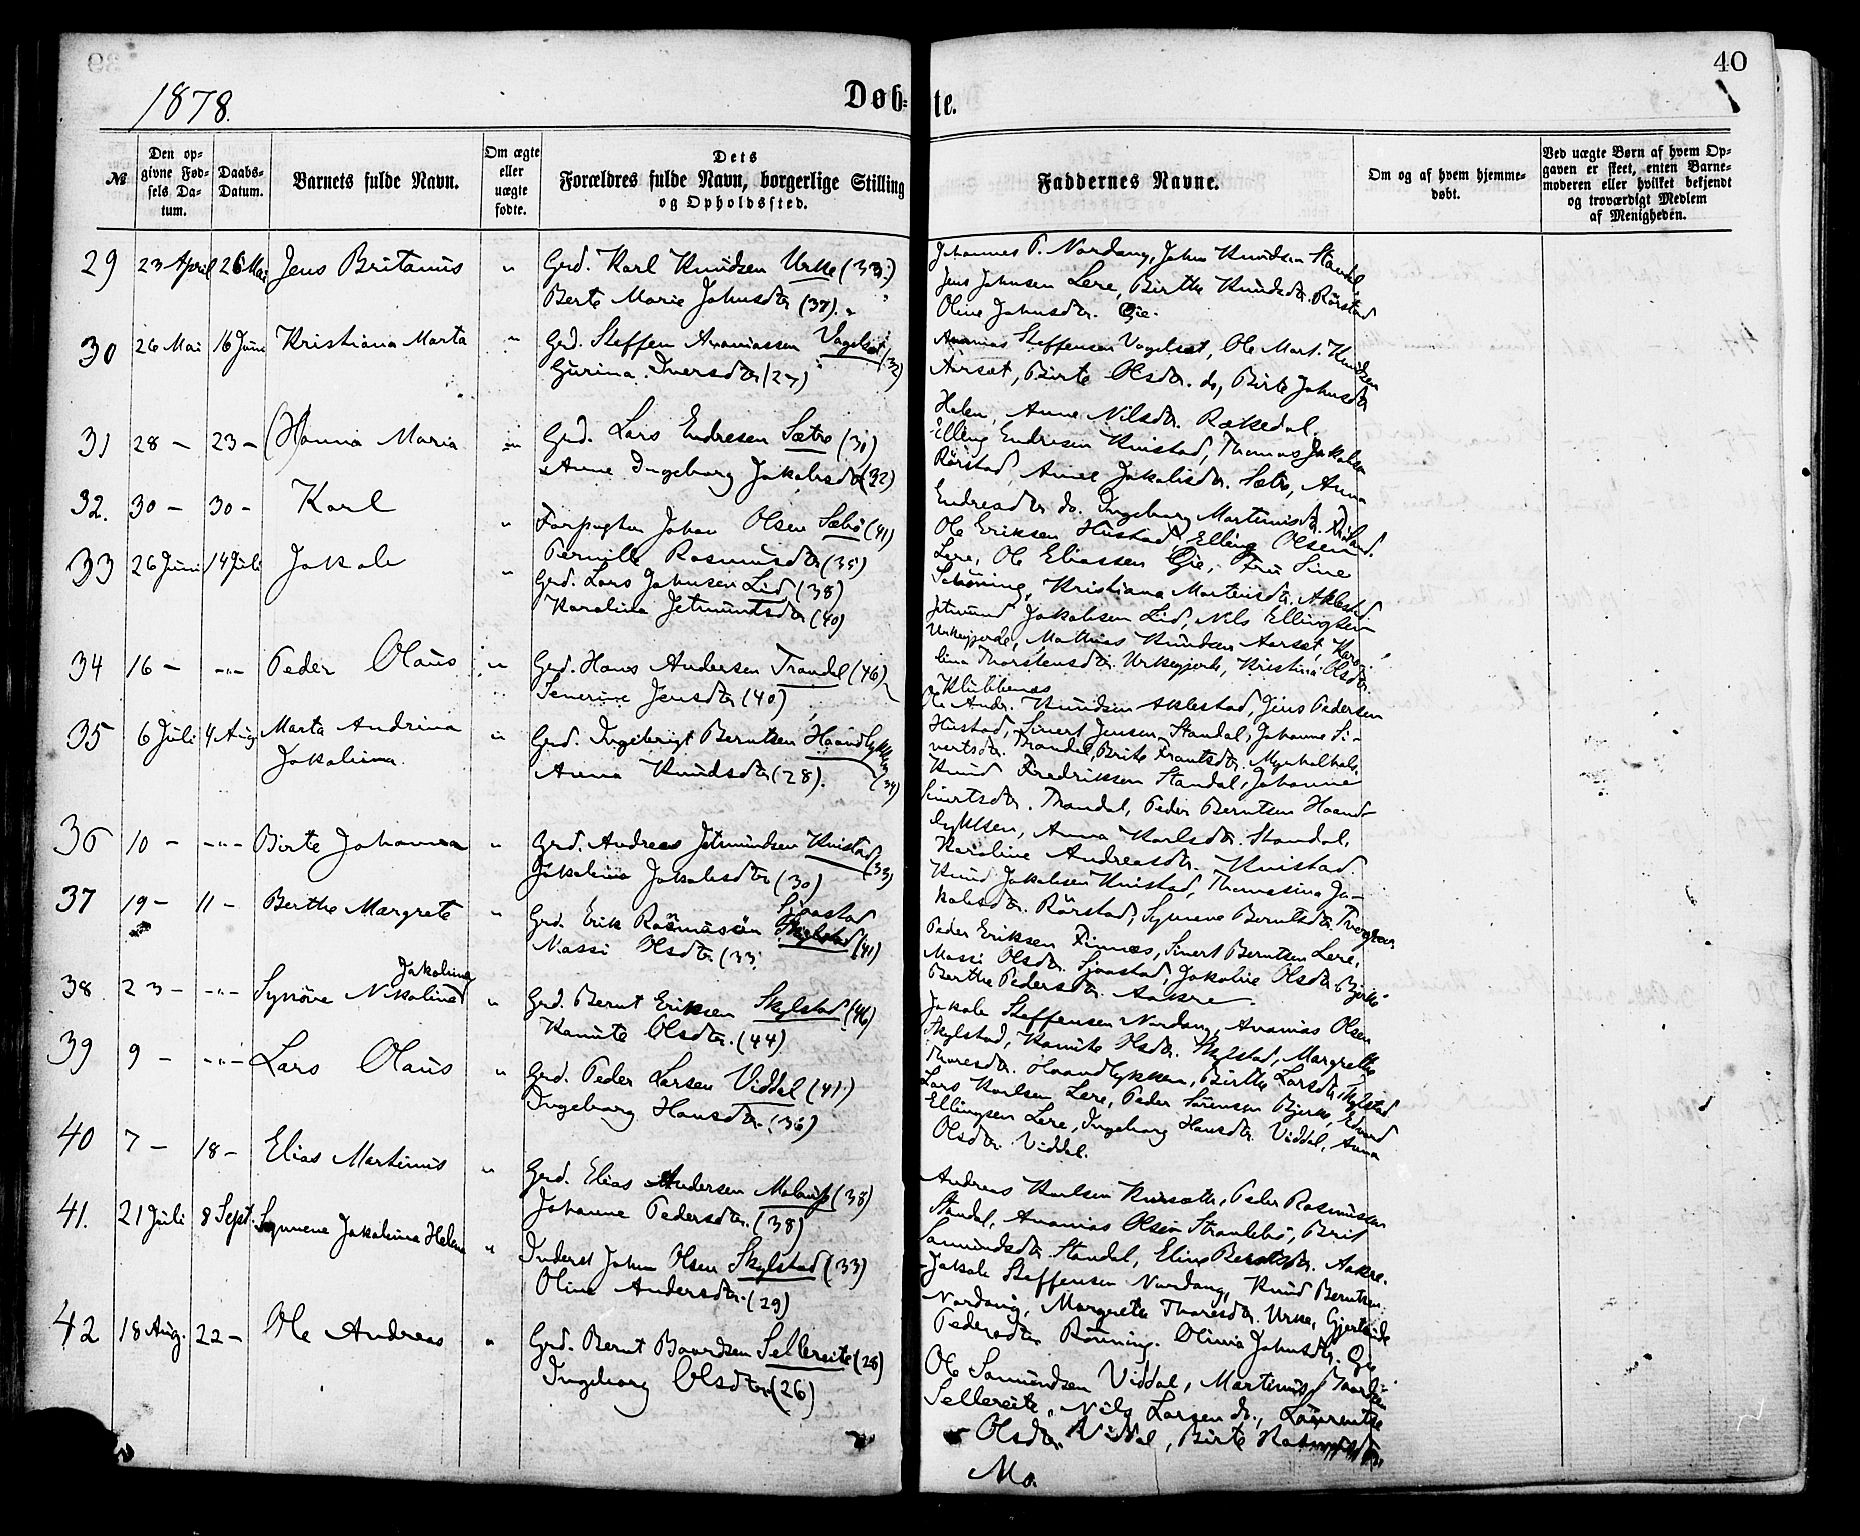 40
1878.
Døb-
te.
№
Den op-
givne Fød-
sels Da-
tum.
Daabs-
Datum.
Barnets fulde Navn.
Om ægte
eller
uægte
fødte.
Dets
Forældres fulde Navn, borgerlige Stilling
og Opholdssted.
Faddernes Navne.
Om og af hvem hjemme-
døbt.
Ved uægte Børn af hvem Op-
gaven er skeet, enten Barne-
moderen eller hvilket bekjendt
og troværdigt Medlem
af Menigheden.
29 23 April 26 Mai Jens Britanus " Grd. Karl Knudsen Urke (33)
Berte Marie Johnsdtr (37). "
Johannes P. Nordang, John Knudsen Standal,
Jens Johnsen Lere, Birthe Knudsdtr. Rörstad
Oline Johnsdtr. Øie.
30 26 Mai 16 Juni Kristiana Marta " Grd. Steffen Ananiassen Vogelset (32)
Gurina Iversdtr (27) "
Ananias Steffensen Vogelset, Ole Mart. Knudsen
Aarset, Birte Olsdtr. do, Birte Johnsdtr
Helen, Anne Nilsdtr. Rækedal.
31 28 - 23 - Hanna Maria " Grd. Lars Endresen Sætre (30)
Anne Ingeborg Jakobsdtr (32)
Elling Endresen Knistad, Thomas Jakobsen
Rörstad, Anne Jakobsdtr. Sætre, Anna
Endresdtr do. Ingeborg Martinusdtr.
32. 30 - 30 - Karl " Johan Olsen Sæbö (41)
Pernille Rasmusdtr (35)
Ole Eriksen Hustad, Elling Olsen
Lere, Ole Eliassen Øie, Fru Sine
Schöning, Kristiana Martinsdtr. Aklestad
33 26 Juni 14 Juli Jakob " Grd. Lars Johnsen Lid (38)
Karolina Jetmundsdtr (40)
Jetmund Jakobsen Lid, Nils Ellingsen
Urkegjerde, Mathias Knudsen Aarset, Karo-
lina Thorstensdtr. Urkegjerde, Kristina Olsdtr.
Klubbenæs
34 16 - -"- Peder Olaus " Grd. Hans Andersen Trandal (46)
Severine Jensdtr (40)
Ole Andr. Knudsen Aklestad, Jens Pedersen
Hustad, Sivert Jensen Standal, Johanne Si-
vertsdtr. Trandal, Brite Frantsdtr.
35 6 Juli 4 Aug Marta Andrina
Jakobina " Grd. Ingebrigt Berntsen Haandlykken (34)
Anna Knudsdtr (28).
Knud Fredriksen Standal, Johanne
Sivertsdtr. Trandal, Peder Berntsen Haand-
lykken, Anna Karlsdtr. Standal,
36 10 - -"- Birte Johanna " Grd. Andreas Jetmundsen Knistad (33)
Jakobina Jakobsdtr (30)
Karoline Andreasdtr. Knistad.
Knud Jakobsen Knistad, Thomasina Ja-
kobsdtr. Rörstad, Synneve Berntsdtr.
37 19 - 11 - Berthe Margrete " Grd. Erik Rasmussen Sjaastad (41)
Massi Olsdtr. (33)
Peder Eriksen Finnæs, Sivert Berntsen Lere,
Massi Olsdtr. Sjaastad, Jakobine Olsdtr. Bjerke
Berthe Pedersdtr. Aakre.
38 23 - -"- Synöve Nikoline Jakobine " Grd. Bernt Eriksen Skylstad (46)
Kanute Olsdtr. (44)
Jakob Steffensen Nordang, Ananias Olsen
Skylstad, Kanute Olsdtr. Skylstad, Margrethe
Thoresdtr. Haandlykken, Birthe Larsdtr. Skylstad
39 9 - -"- Lars Olaus " Grd. Peder Larsen Viddal (41)
Ingeborg Hansdtr. (36)
Lars Karlsen Lere, Peder Sörensen Bjerke, Edvard
Ellingsen Lere, Ingeborg Hansdtr. Viddal, Anna
Olsdtr. Viddal.
40 7 - 18 - Elias Martinus " Grd. Elias Andersen (38)
Johanne Pedersdtr. (38)
Andreas Karlsen Peder Rasmussen
Standal, Ananias Olsen Brit
Samundsdtr. Standal, Eline Berntsdtr. Aakre.
41. 21 Juli 8 Sept. Synneve Jakobina Helene " Inderst John Olsen Skylstad (33)
Oline Andersdtr. (29)
Jakob Steffensen Nordang, Knud Berntsen
Nordang, Margrethe Thoresdtr. Urke, Gjertrude
Pedersdtr Rönning. Olina Johnsdtr. Øie
42 18 Aug. 22 - Ole Andreas " Grd. Bernt Baardsen Sellereite (28)
Ingeborg Olsdtr (26)
Ole Samundsen Viddal, Martinus Baardsen
Sellereite, Nils Larsen do., Laurentse
Olsdtr. Viddal, Birte
Mo.